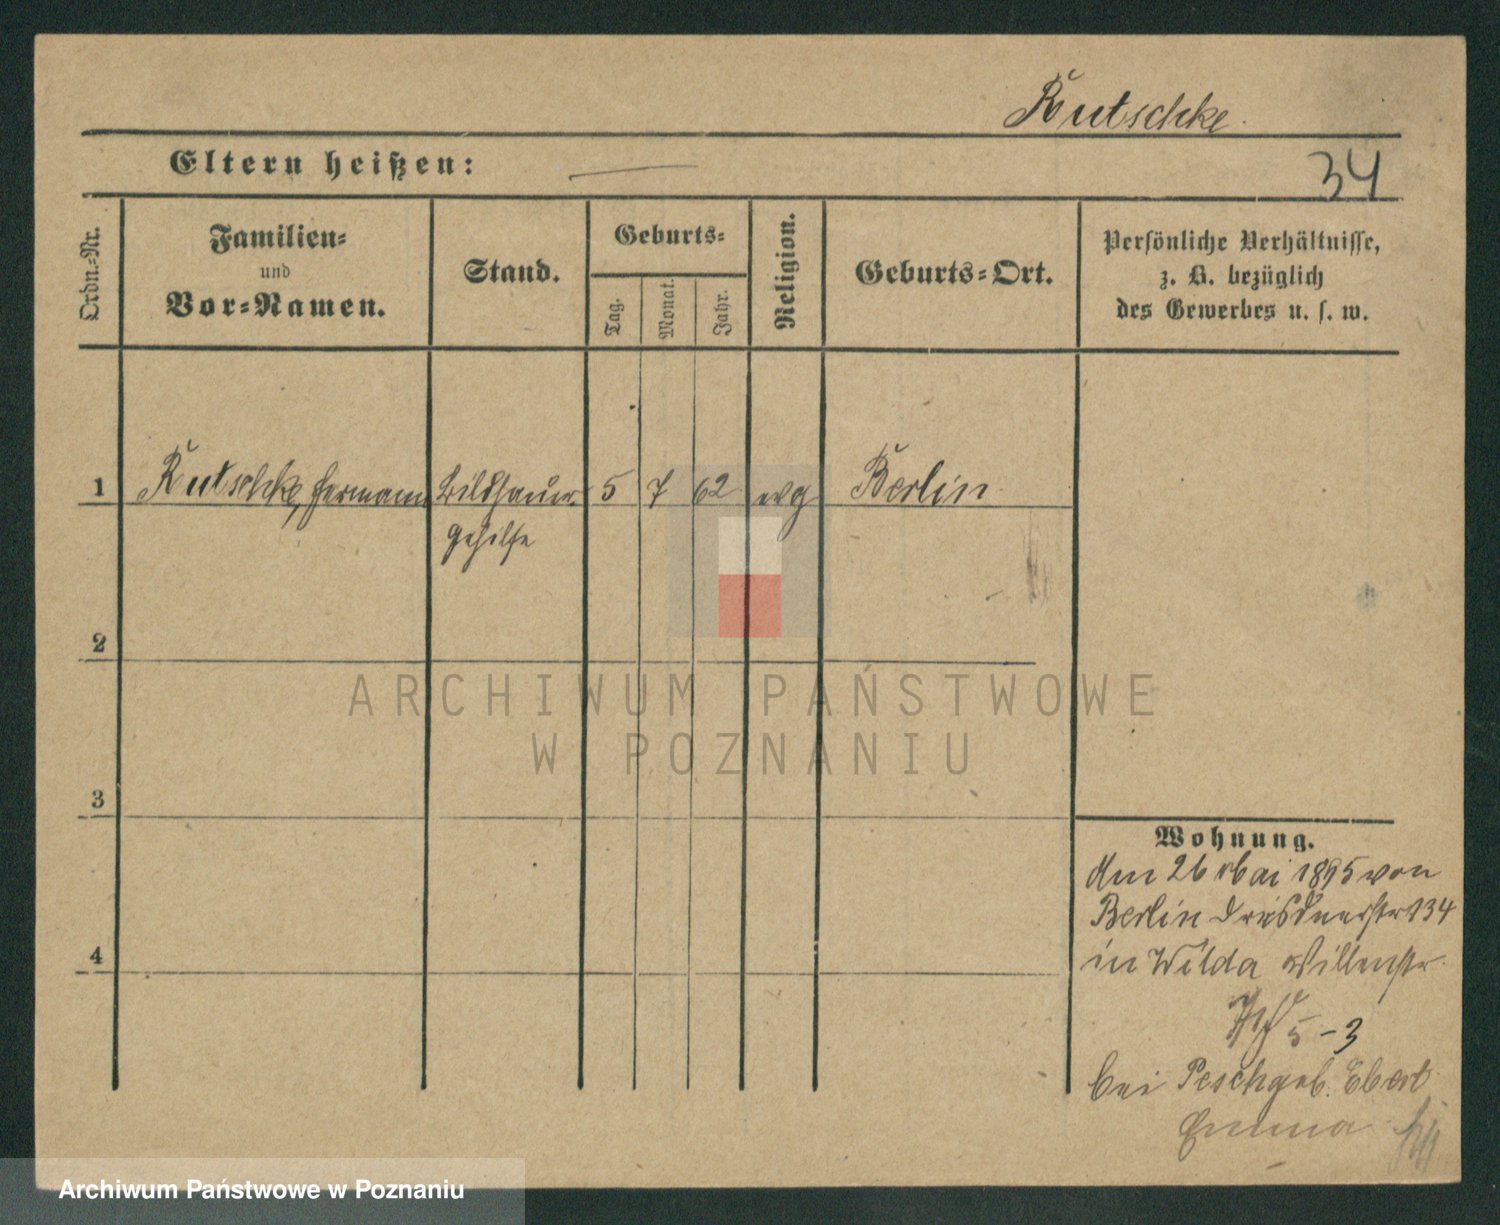 Kutschke.
Eltern heißen: —
34
Ordn.=Nr.
Familien=
und
Vor=Namen.
Stand.
Geburts=
Tag.
Monat.
Jahr.
Religion.
Geburts=Ort.
Persönliche Verhältnisse,
z. B. bezüglich
des Gewerbes u. s. w.
1 Kutschke, Hermann Bildhauer= 5 7 62 evg Berlin
gehilfe
2
3
4
Wohnung.
den 26 Mai 1895 von
Berlin Dresdnerstr 134
in Wilda Villenstr.
5-3
bei Pesch geb. Ebert
Emma
ARCHIWUM PAŃSTWOWE
W POZNANIU
Archiwum Państwowe w Poznaniu